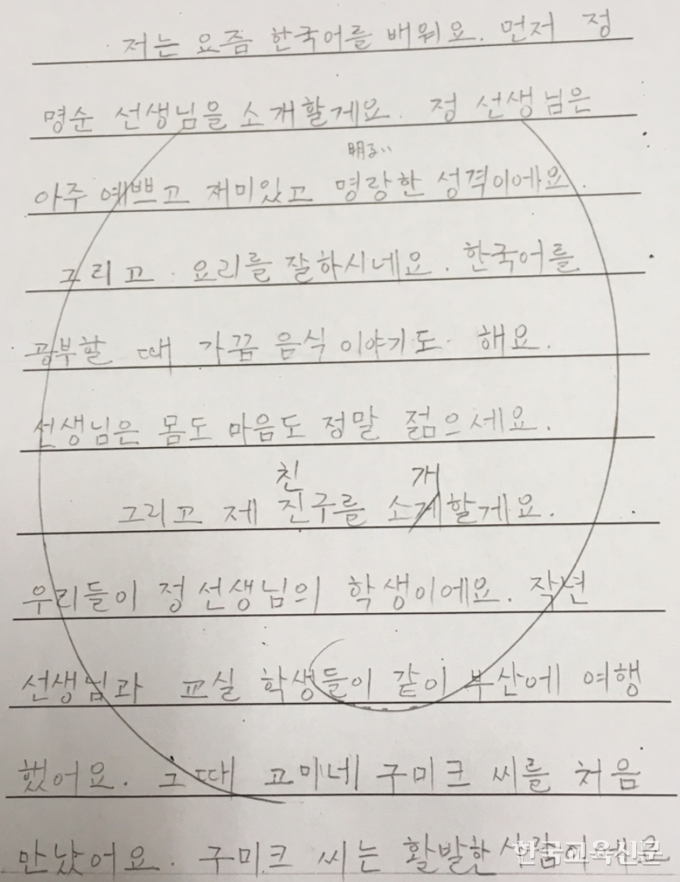 저는 요즘 한국어를 배워요. 먼저 정
명순 선생님을 소개할게요. 정 선생님은
明るい
아주 예쁘고 재미있고 명랑한 성격이에요.
그리고 요리를 잘하시네요. 한국어를
공부할 때 가끔 음식 이야기도 해요.
선생님은 몸도 마음도 정말 젊으세요.
친 개
그리고 제 진구를 소게할게요.
우리들이 정 선생님의 학생이에요. 작년
선생님과 교실 학생들이 같이 부산에 여행
했어요. 그때 고미네 구미코 씨를 처음
만났어요. 구미코 씨는 활발한 사람이에요
한국교육신문